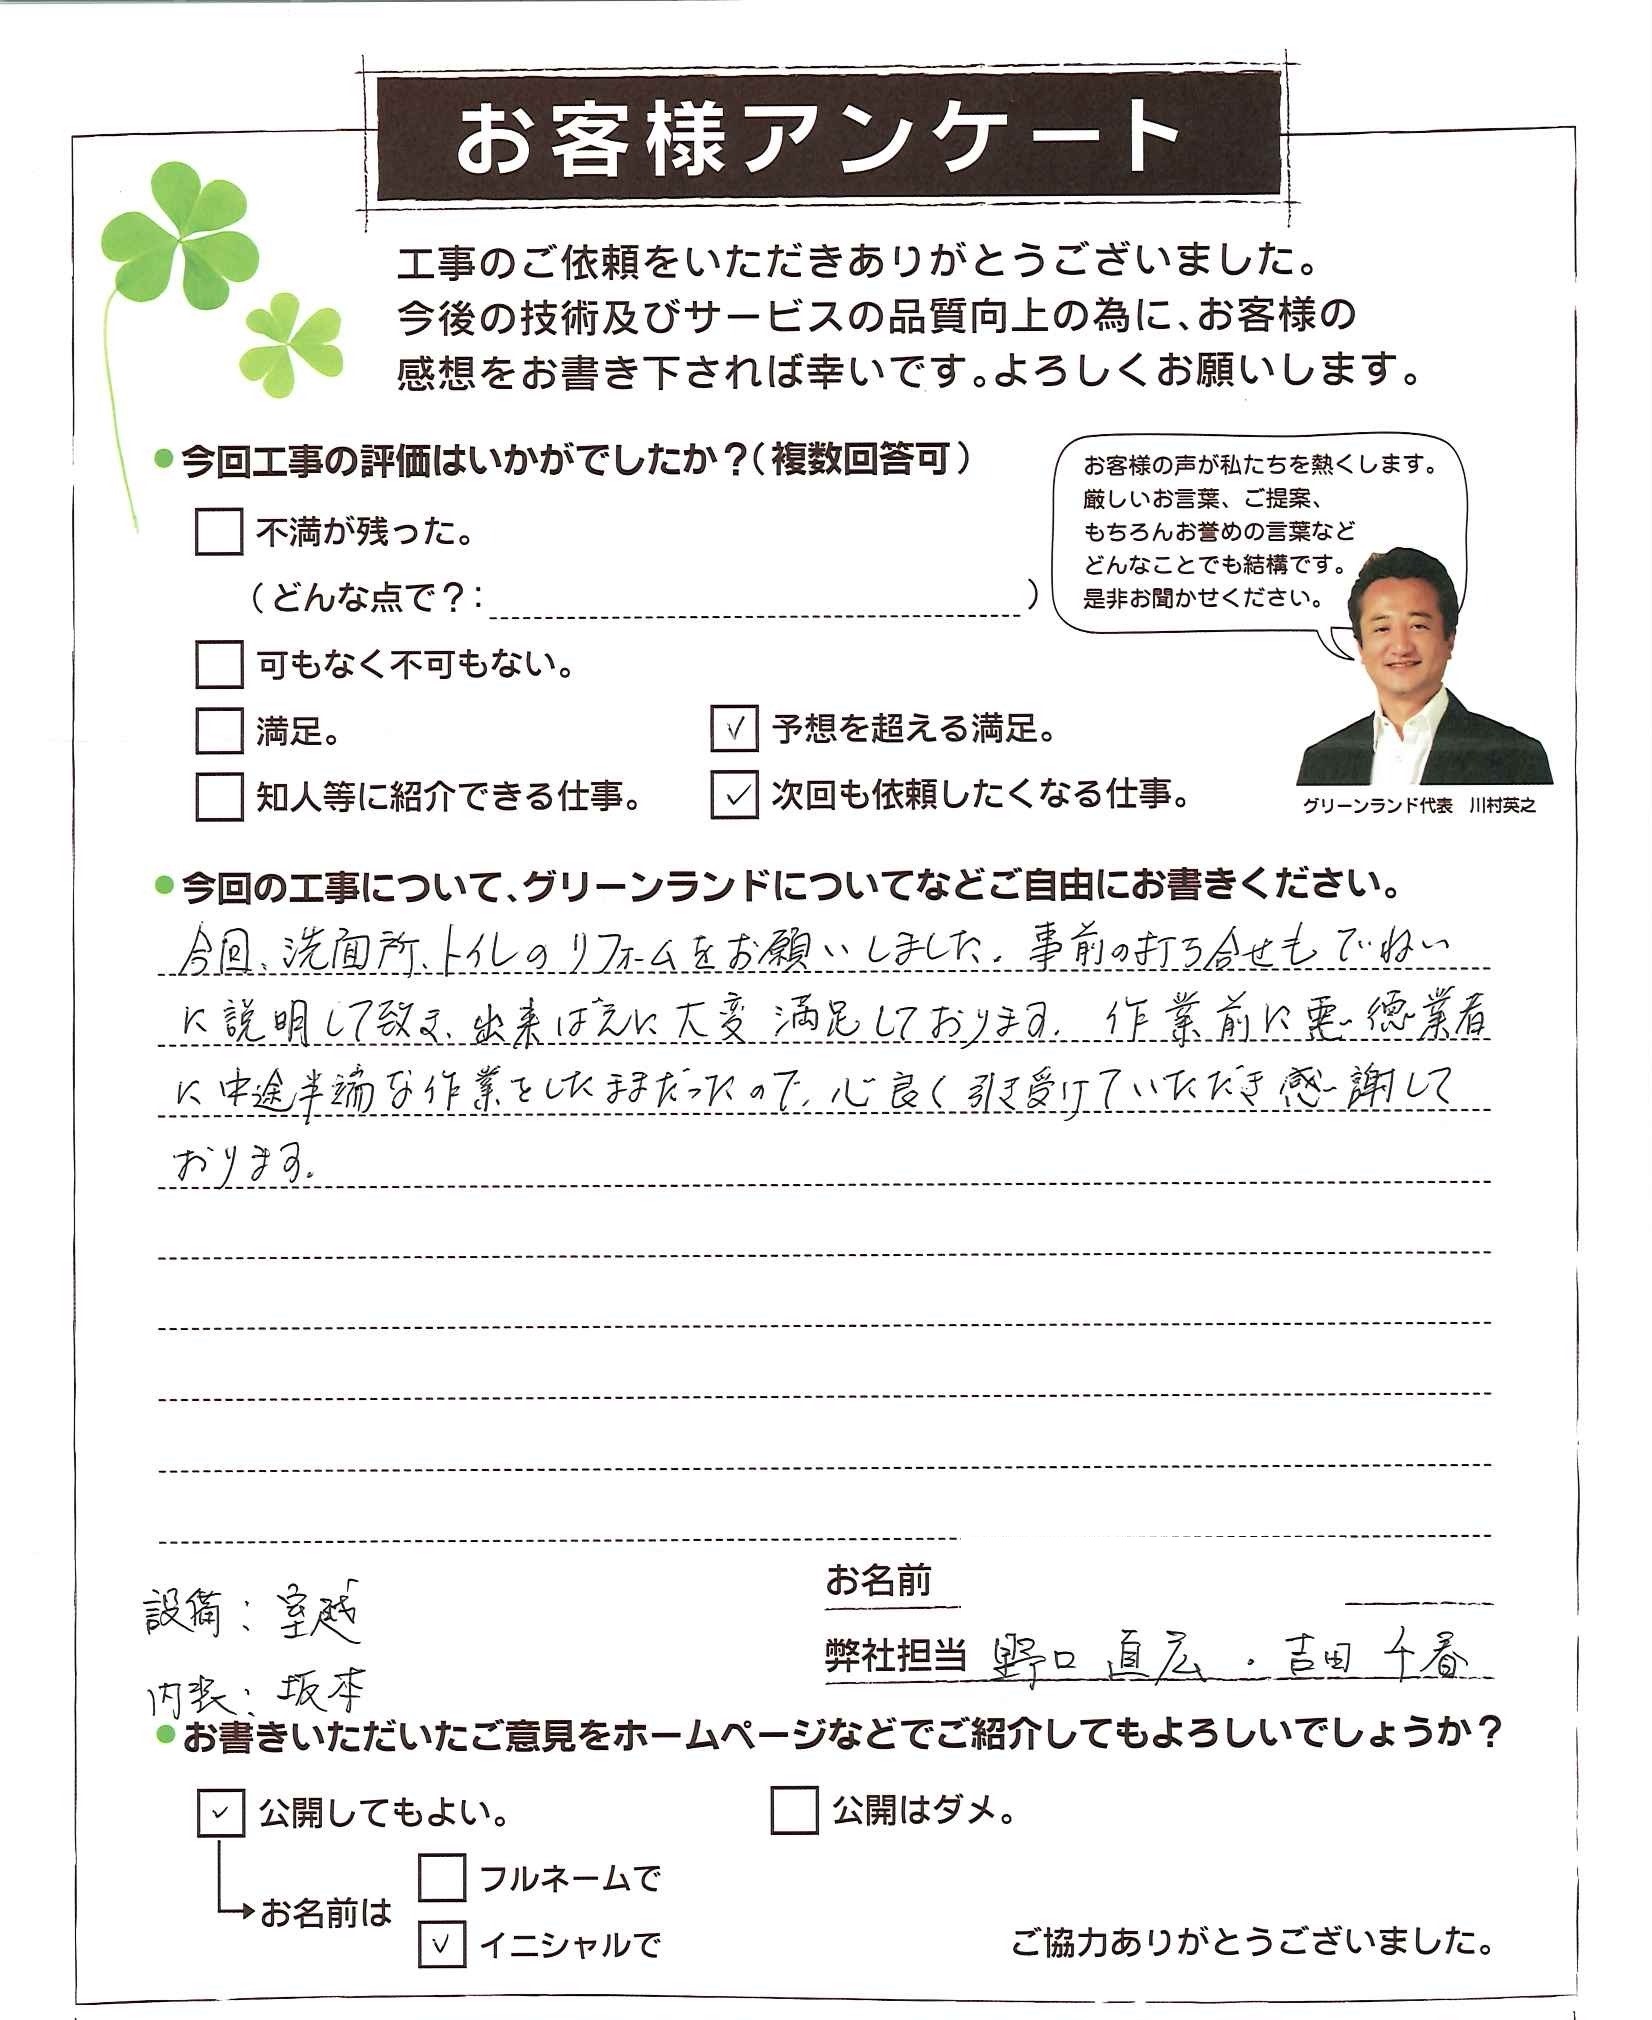 お客様アンケート
工事のご依頼をいただきありがとうございました。
今後の技術及びサービスの品質向上の為に、お客様の
感想をお書き下されば幸いです。よろしくお願いします。
●今回工事の評価はいかがでしたか？（複数回答可）
不満が残った。
（どんな点で？：　）
可もなく不可もない。
満足。
✓ 予想を超える満足。
知人等に紹介できる仕事。
✓ 次回も依頼したくなる仕事。
お客様の声が私たちを熱くします。
厳しいお言葉、ご提案、
もちろんお誉めの言葉など
どんなことでも結構です。
是非お聞かせください。
グリーンランド代表　川村英之
●今回の工事について、グリーンランドについてなどご自由にお書きください。
今回、洗面所、トイレのリフォームをお願いしました。事前の打ち合せもていねい
に説明して致ま、出来ばえに大変満足しております。作業前に悪徳業者
に中途半端な作業をしたままだったので、心良く引き受けていただき感謝して
おります。
お名前
設備：室越
弊社担当 野口 直広・吉田 千春
内装：坂本
●お書きいただいたご意見をホームページなどでご紹介してもよろしいでしょうか？
✓ 公開してもよい。
公開はダメ。
お名前は
フルネームで
✓ イニシャルで
ご協力ありがとうございました。